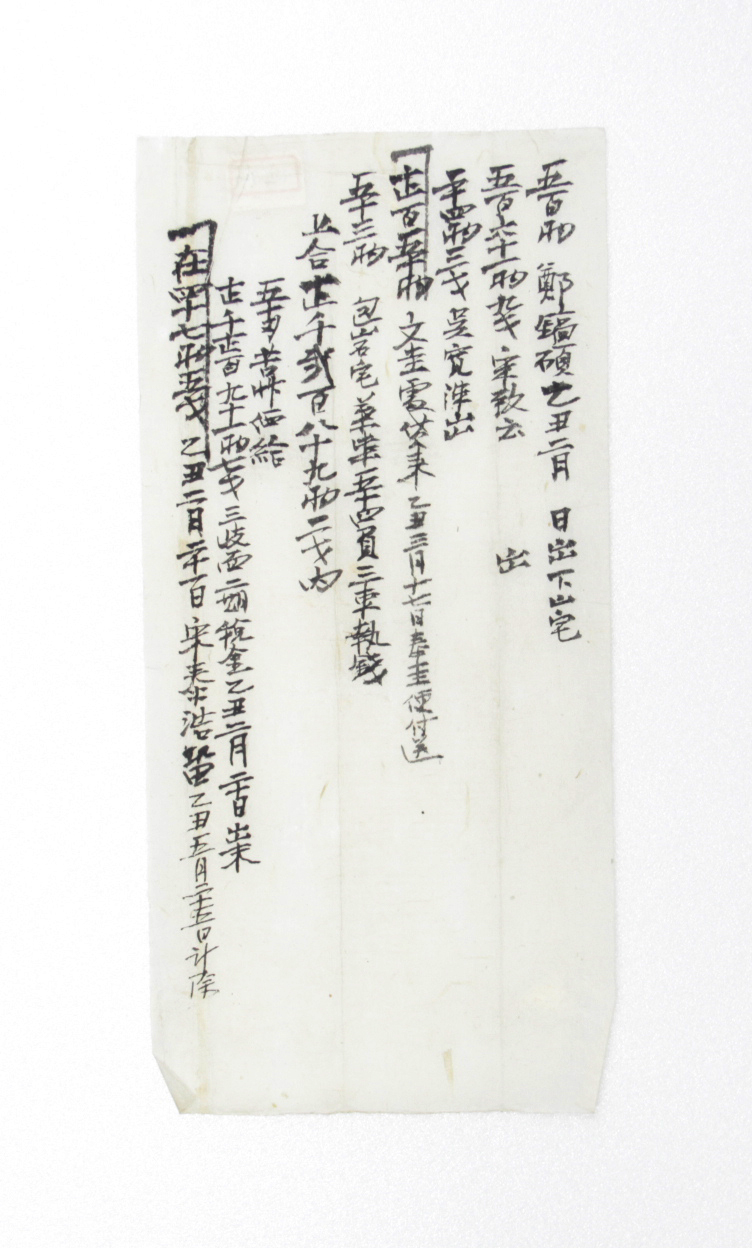 五百兩 鄭鎬碩 乙丑二月 日出下山宅
五百六十一兩九戈 宋致云 出
二十四兩三戈 吳寬洙出
壱百五十兩 文圭處貸來 乙丑三月十七日奉圭便付送
五十三兩 包岩宅 葉 五十四負三束執錢
並合壱千貳百八十九兩二戈內
五十兩 苦草価給
壱千壱百九十一兩七戈 三岐面二期稅金乙丑二月二十日出末
在四十七兩五戈 乙丑二月二十一日 宋泰浩 乙丑五月二十五日計除